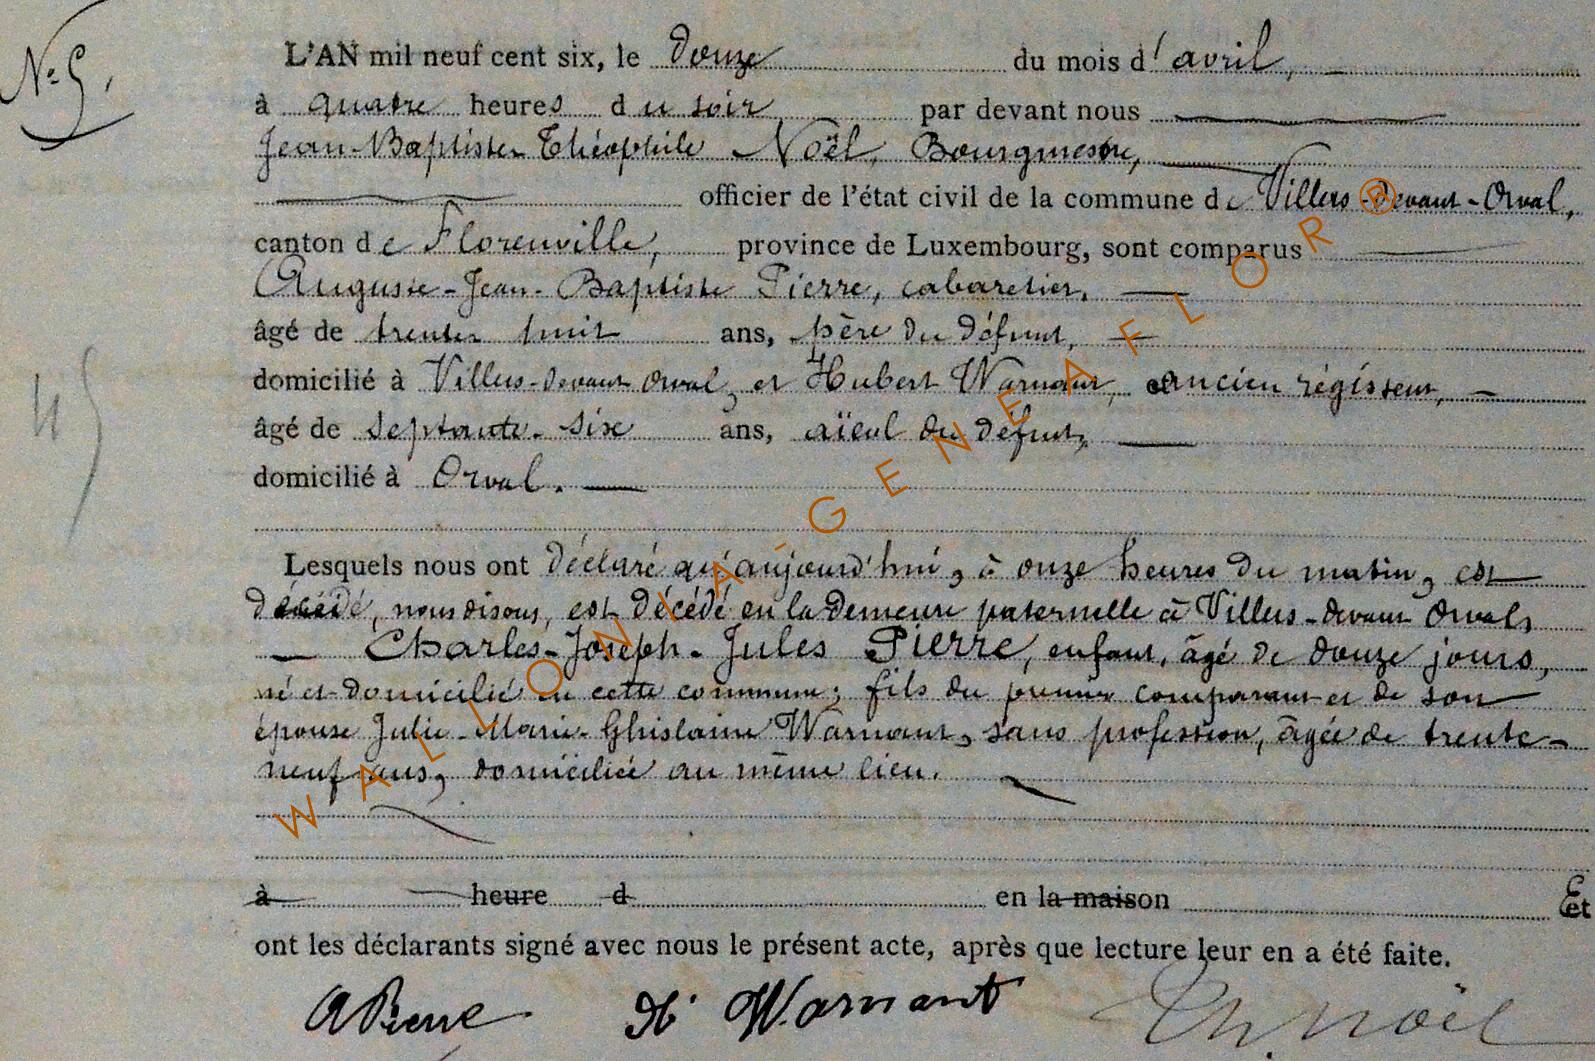 N° 5,
L'AN mil neuf cent six, le douze du mois d'avril,
à quatre heures du soir par devant nous
Jean-Baptiste-Théophile Noël, Bourgmestre,
officier de l'état civil de la commune de Villers-devant-Orval,
canton de Florenville, province de Luxembourg, sont comparus
Auguste-Jean-Baptiste Pierre, cabaretier,
âgé de trente huit ans, père du défunt,
domicilié à Villers-devant Orval, et Hubert Warnant, ancien régisseur,
âgé de septante-six ans, aïeul du défunt,
domicilié à Orval.
45
Lesquels nous ont déclaré qu'aujourd'hui, à onze heures du matin, est
décédé, nous disons, est décédé en la demeure paternelle à Villers-devant Orval,
Charles-Joseph-Jules Pierre, enfant, âgé de douze jours,
né et domicilié en cette commune; fils du premier comparant et de son
épouse Julie-Marie-Ghislaine Warnant, sans profession, âgée de trente-
neuf ans, domiciliée au même lieu.
à heure d en la maison Et
ont les déclarants signé avec nous le présent acte, après que lecture leur en a été faite.
A Pierre Ht Warnant Th. Noël
WALLONIA-GENEAFLOR®